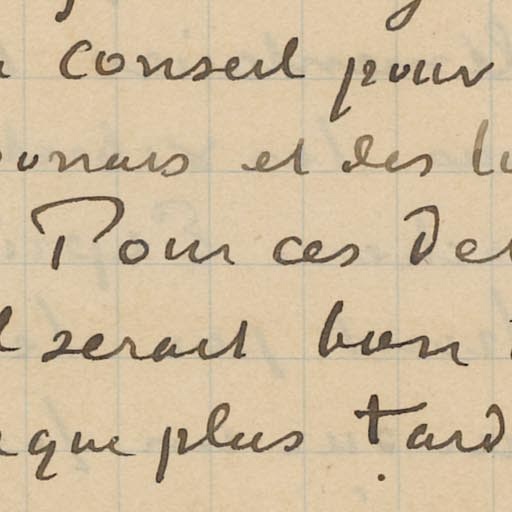 conseil pour
et des
Pour ces der
serait bon
que plus tard